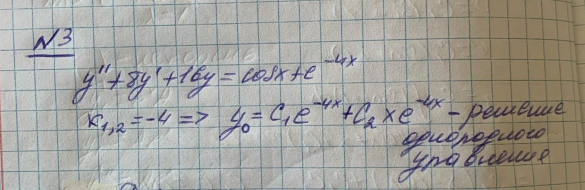 N3
y'' + 8y' + 16y = cosx + e^{-4x}
k_{1,2} = -4 => y_0 = C_1 e^{-4x} + C_2 x e^{-4x} - решение
однородного
уравнения